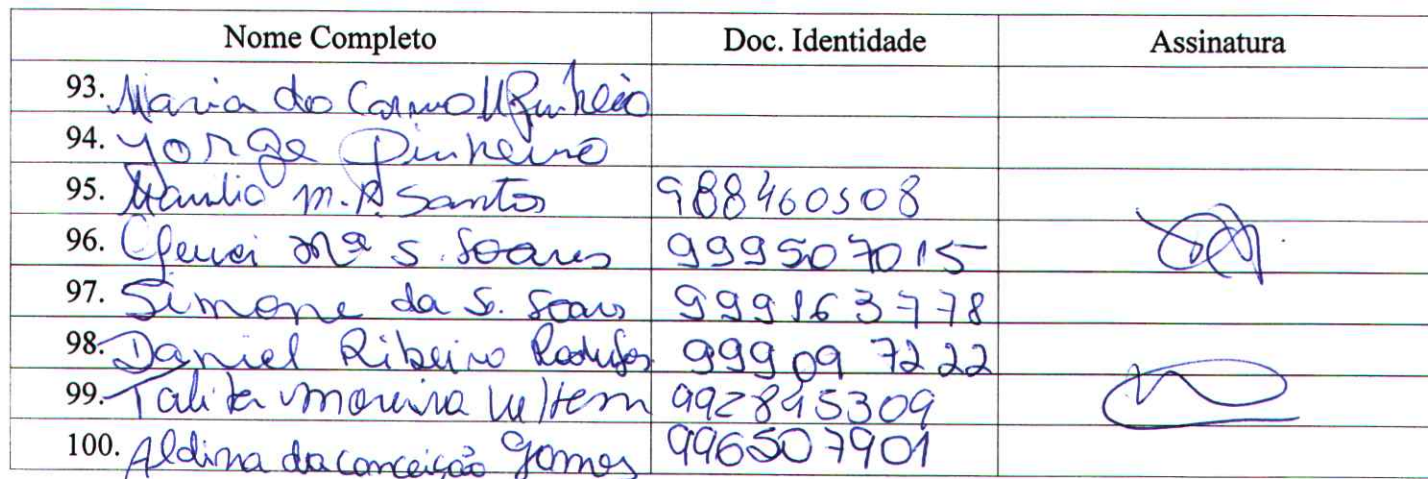 Nome Completo Doc. Identidade Assinatura
93. Maria do Carmo
94. Jorge Pinheiro
95. M. Santos 988460508
96. Mª S. Soares 999507015
97. Simone da S. Soares 999163778
98. Daniel Ribeiro Rodrigues 999097222
99. Talita Moreira 992845309
100. Aldina da Conceição Gomes 996507901